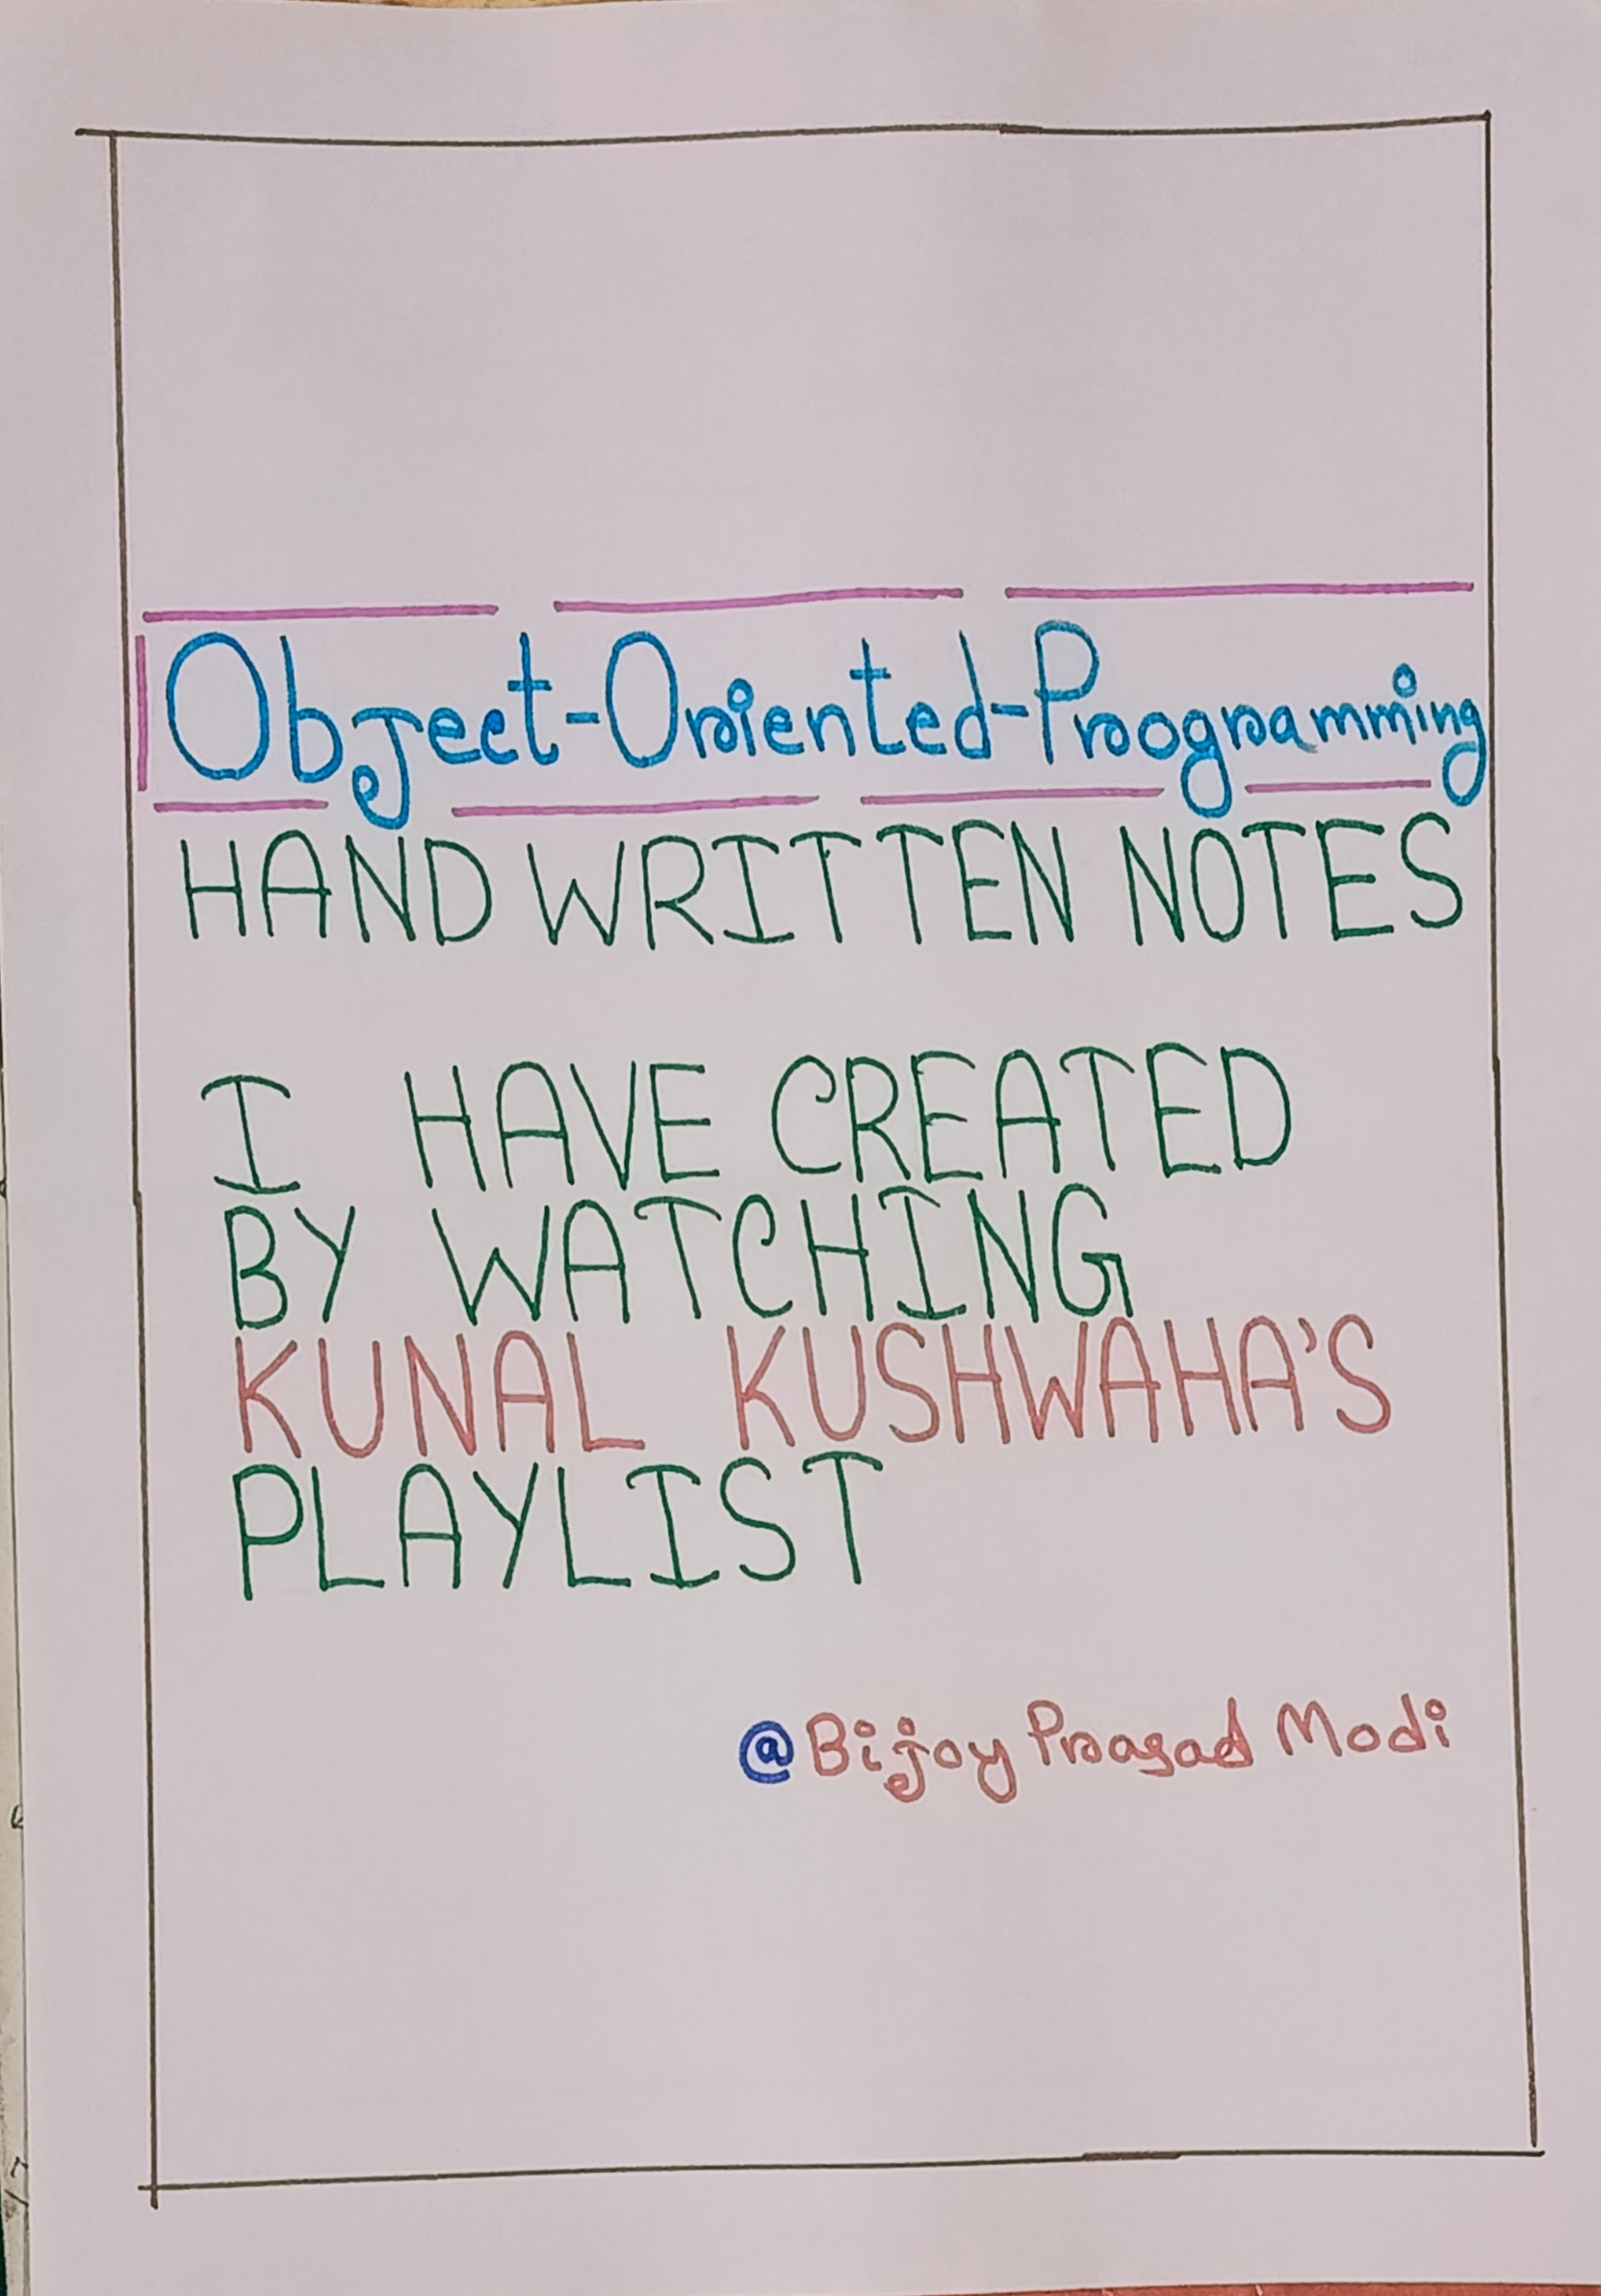 Object-Oriented-Programming
HAND WRITTEN NOTES
I HAVE CREATED
BY WATCHING
KUNAL KUSHWAHA'S
PLAYLIST
@Bijoy Prasad Modi